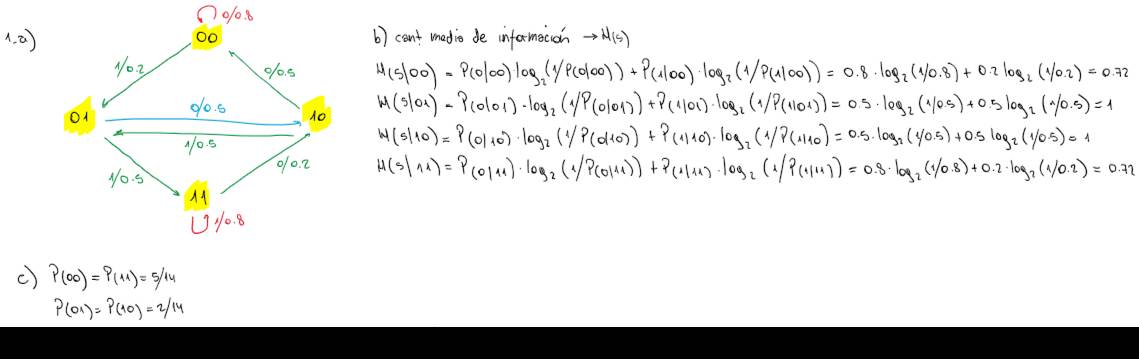 1.a)
0/0.8
00
1/0.2
0/0.5
01
0/0.5
10
1/0.5
1/0.5
0/0.2
11
1/0.8
b) cant media de información → H(s)
H(s|00) = P(0|00)·log₂(1/P(0|00)) + P(1|00)·log₂(1/P(1|00)) = 0.8·log₂(1/0.8) + 0.2 log₂(1/0.2) = 0.72
H(s|01) = P(0|01)·log₂(1/P(0|01)) + P(1|01)·log₂(1/P(1|01)) = 0.5·log₂(1/0.5) + 0.5 log₂(1/0.5) = 1
H(s|10) = P(0|10)·log₂(1/P(0|10)) + P(1|10)·log₂(1/P(1|10) = 0.5·log₂(1/0.5) + 0.5 log₂(1/0.5) = 1
H(s|11) = P(0|11)·log₂(1/P(0|11)) + P(1|11)·log₂(1/P(1|11)) = 0.8·log₂(1/0.8) + 0.2·log₂(1/0.2) = 0.72
c) P(00) = P(11) = 5/14
P(01) = P(10) = 2/14